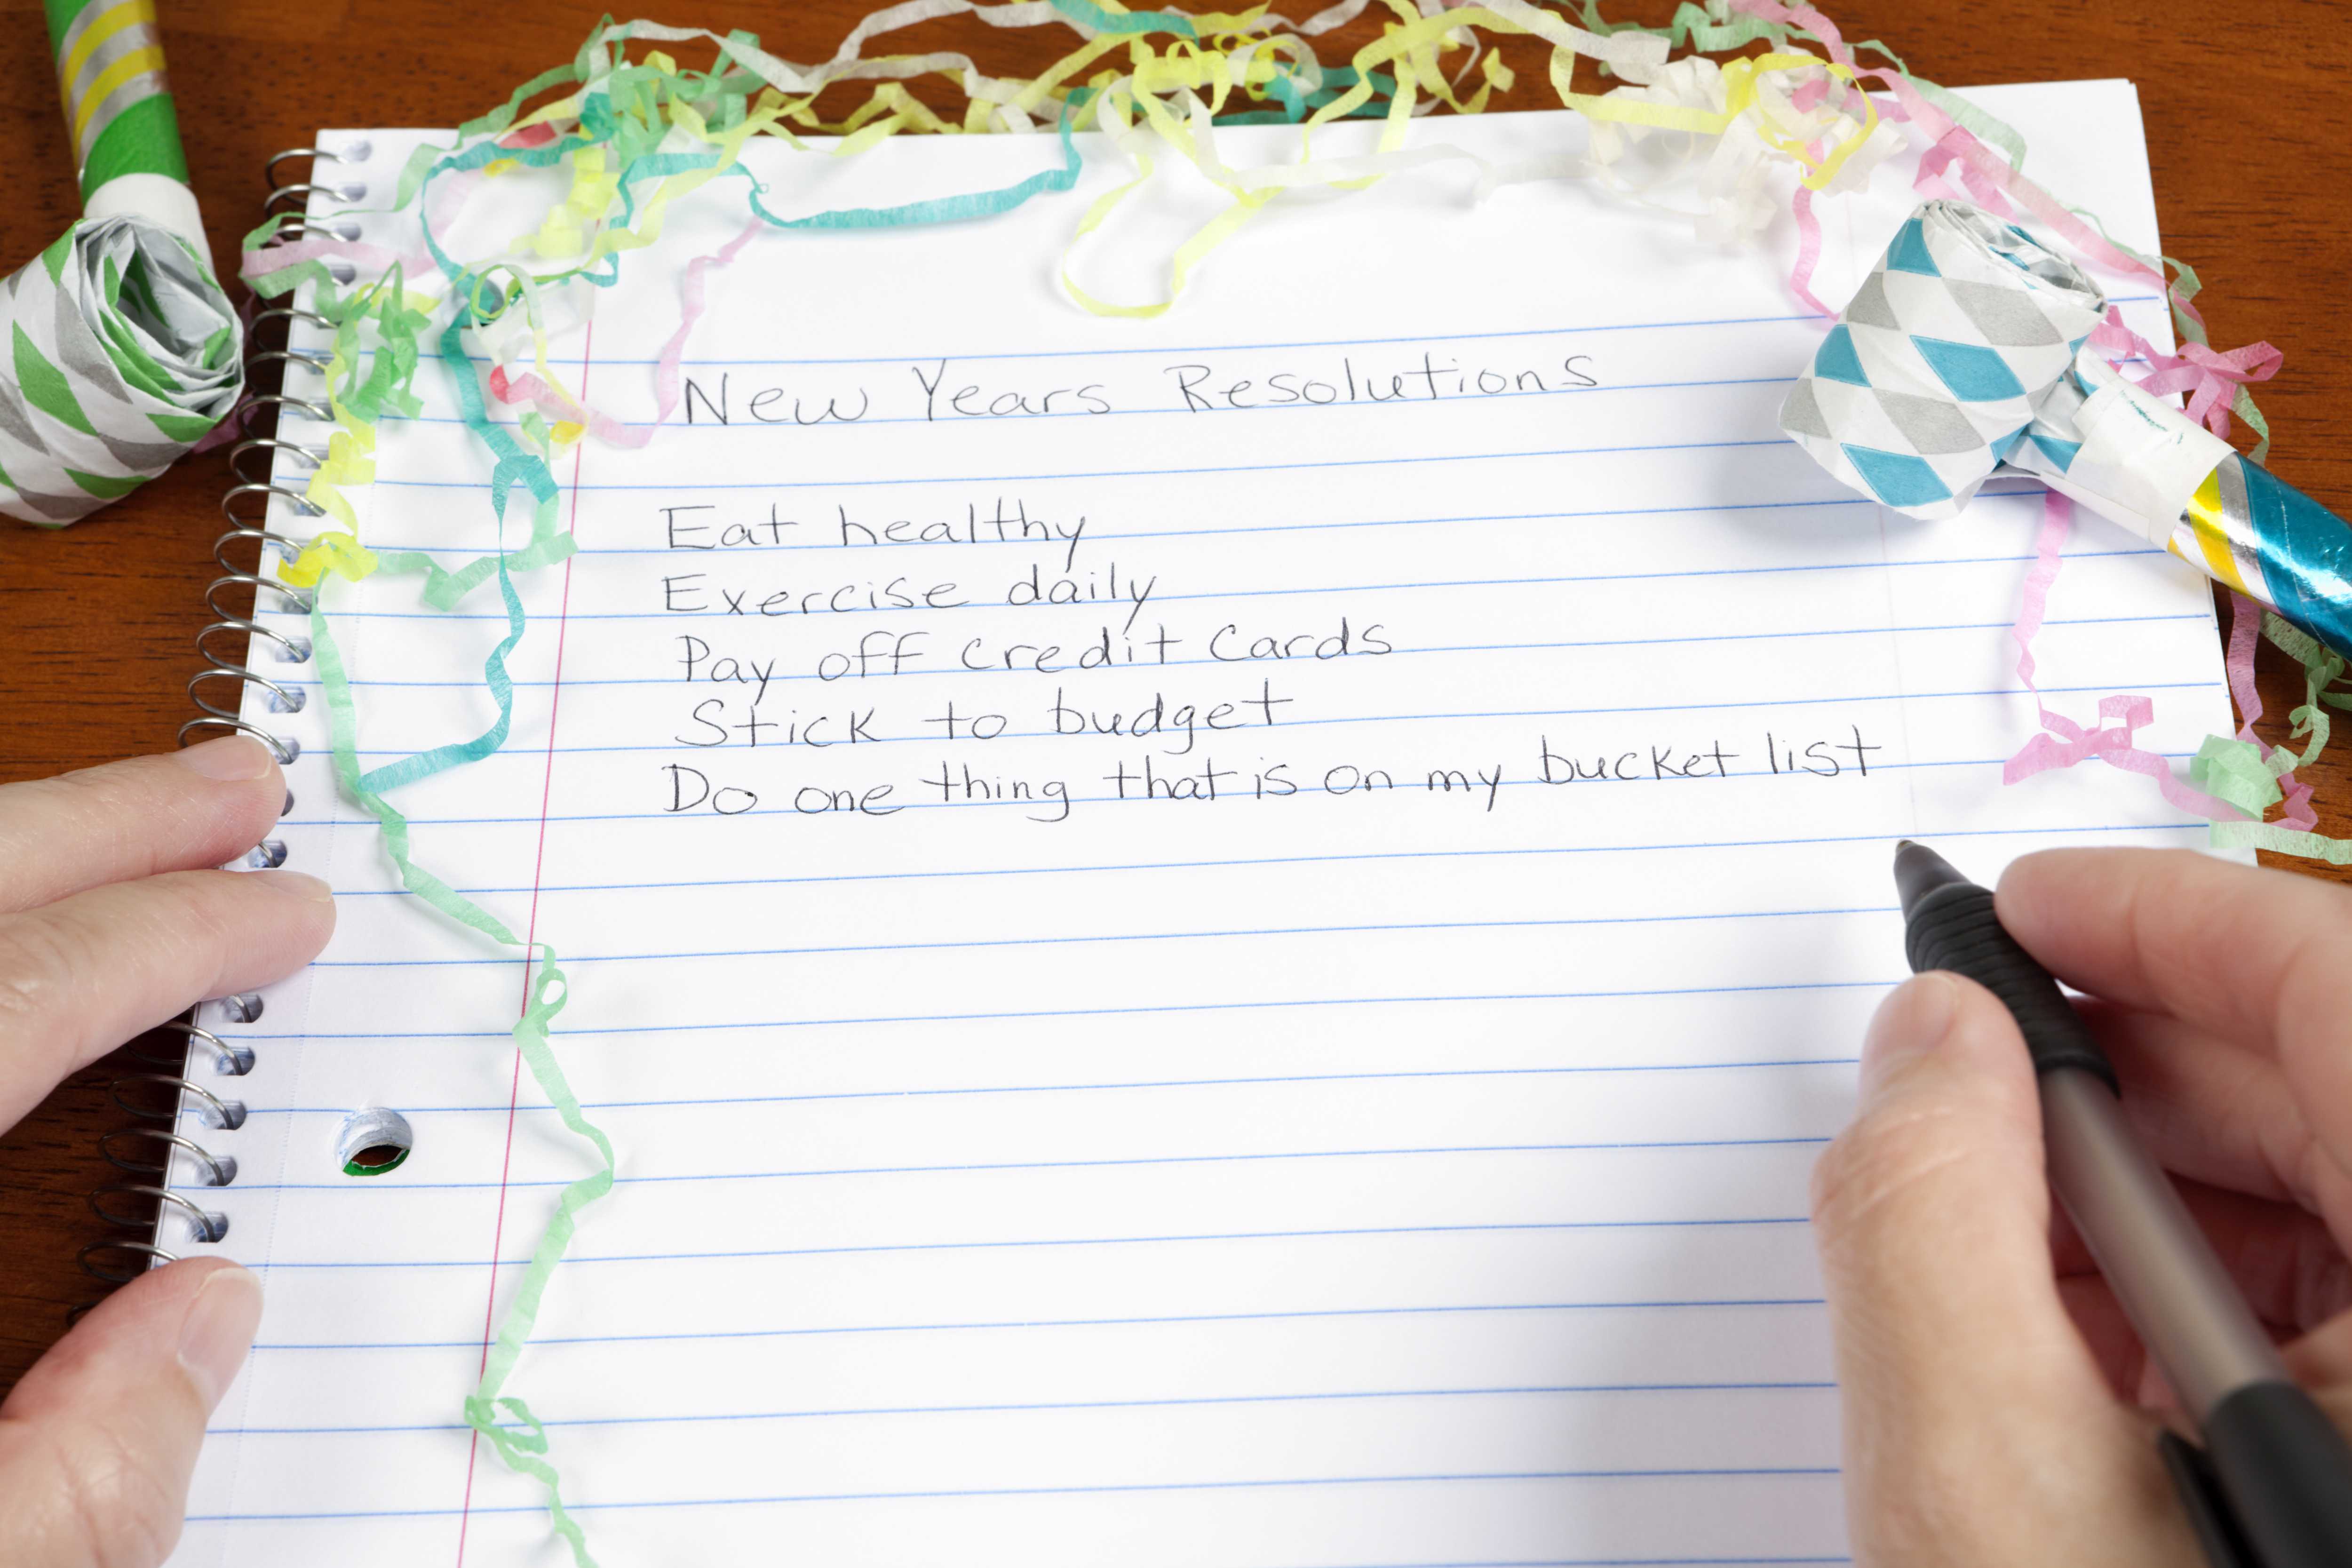 New Years Resolutions
Eat healthy
Exercise daily
Pay off credit cards
Stick to budget
Do one thing that is on my bucket list